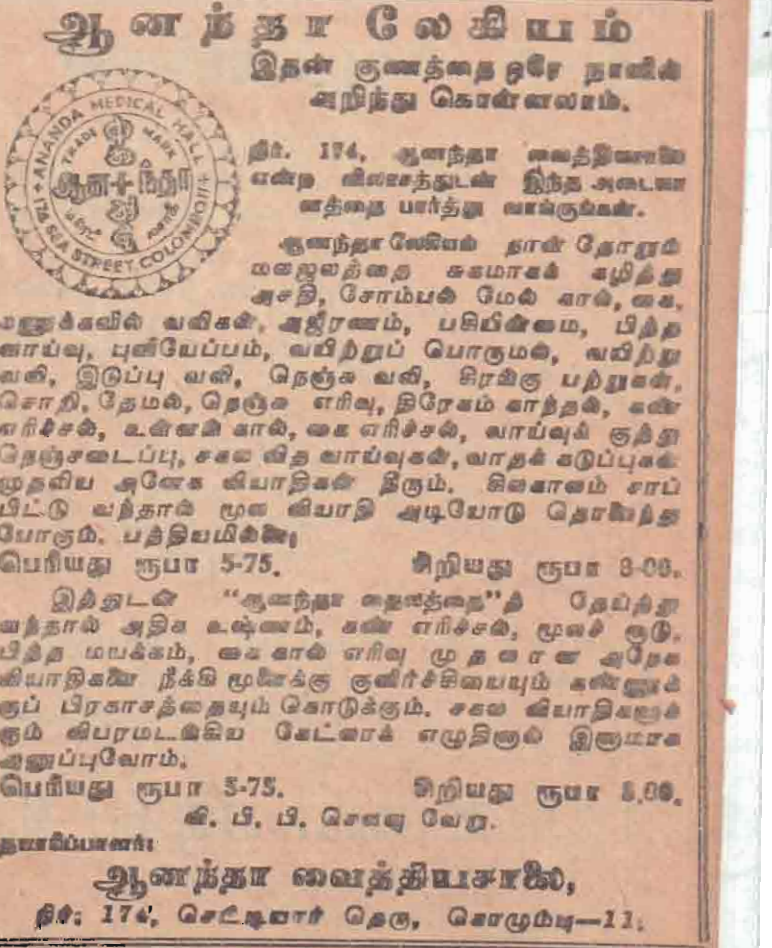 ஆனந்தா லேகியம்
இதன் குணத்தை ஒரே நாளில்
அறிந்து கொள்ளலாம்.
ANANDA MEDICAL HALL
174 SEA STREET, COLOMBO 11
TRADE MARK
ஆனந்தா
நிர். 174, ஆனந்தா வைத்தியசாலை
என்ற விலாசத்துடன் இந்த அடையா
ளத்தை பார்த்து வாங்குங்கள்.
ஆனந்தா லேகியம் நாள் தோறும்
மலஜலத்தை சுகமாகக் கழித்து
அசதி, சோம்பல் மேல் கால், கை,
வலிகள், அஜீரணம், பசியின்மை, பித்த
வாய்வு, புளியேப்பம், வயிற்றுப் பொருமல், வயிற்று
வலி, இடுப்பு வலி, நெஞ்சு வலி, சிரங்கு பற்றுகள்,
சொறி, தேமல், நெஞ்சு எரிவு, திரேகம் காந்தல், கண்
எரிச்சல், உள்ளங் கால், கை எரிச்சல், வாய்வுக் குத்து
நெஞ்சடைப்பு, சகல வித வாய்வுகள், வாதக் கடுப்புகள்
முதலிய அனேக வியாதிகள் தீரும். சிலகாலம் சாப்
பிட்டு வந்தால் மூல வியாதி அடியோடு தொலைந்து
போகும். பத்தியமில்லை;
பெரியது ரூபா 5-75. சிறியது ரூபா 3-00.
இத்துடன் "ஆனந்தா தைலத்தை"த் தேய்த்து
வந்தால் அதிக உஷ்ணம், கண் எரிச்சல், மூலச் சூடு,
பித்த மயக்கம், கை கால் எரிவு முதலான அநேக
வியாதிகளை நீக்கி மூளைக்கு குளிர்ச்சியையும் கண்ணுக்
குப் பிரகாசத்தையும் கொடுக்கும். சகல வியாதிகளுக்
கும் விபரமடங்கிய கேட்லாக் எழுதினால் இனாமாக
அனுப்புவோம்.
பெரியது ரூபா 5-75. சிறியது ரூபா 3.00.
வி. பி. பி. செலவு வேறு.
தயாரிப்பாளர்:
ஆனந்தா வைத்தியசாலை,
நிர்; 174, செட்டியார் தெரு, கொழும்பு—11;